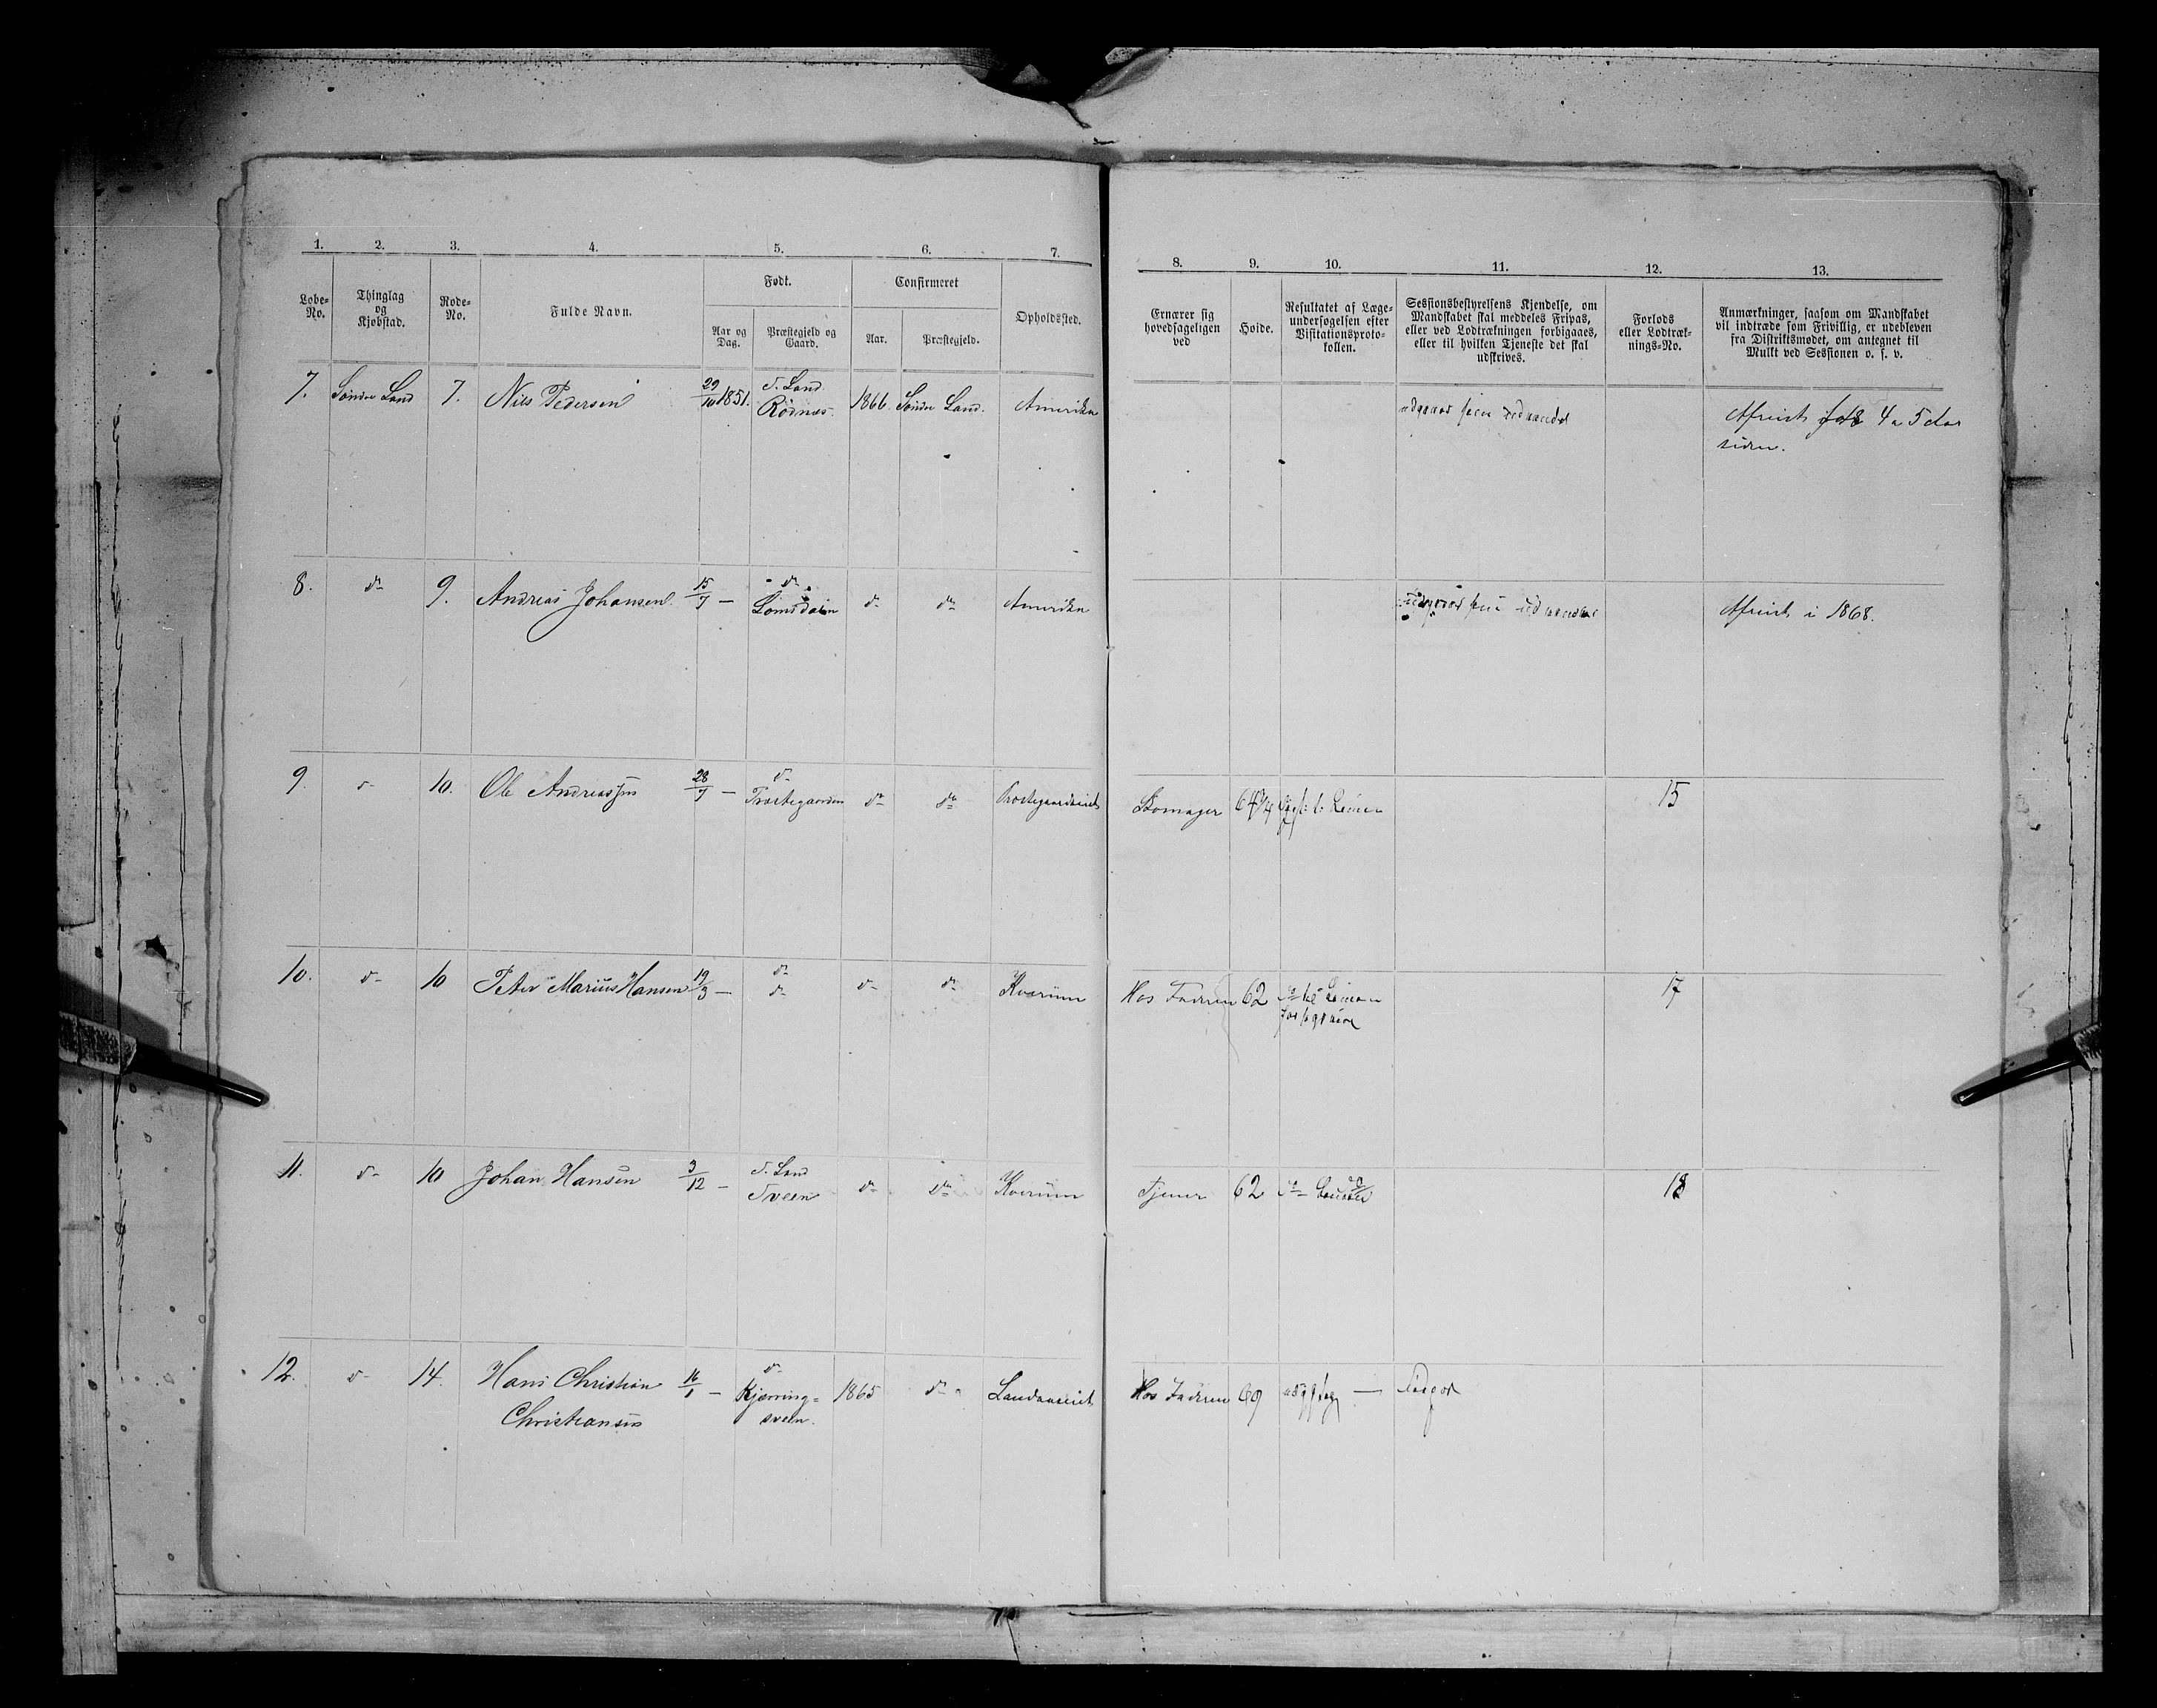 1. 2. 3. 4. 5. 6. 7. 8. 9. 10. 11. 12. 13.
Løbe-
No.
Thinglag
og
Kjøbstad.
Rode-
No.
Fulde Navn.
Født.
Aar og
Dag.
Præstegjeld og
Gaard.
Confirmeret
Aar.
Præstegjeld.
Opholdssted.
Ernærer sig
hovedsageligen
ved
Høide.
Resultatet af Læge-
undersøgelsen efter
Visitationsproto-
kollen.
Sessionsbestyrelsens Kjendelse, om
Mandskabet skal meddeles Fripas,
eller ved Lodtrækningen forbigaaes,
eller til hvilken Tjeneste det skal
udskrives.
Forlods
eller Lodtræk-
nings-No.
Anmærkninger, saasom om Mandskabet
vil indtræde som Frivillig, er udebleven
fra Distriktsmødet, om antegnet til
Mulkt ved Sessionen o. s. v.
7. Søndre Land 7. Nils Pedersen 29/10 1851. S. Land 1866. Søndre Land. Amerika udgaar som udvandret Afreist 4 a 5 Aar
Rödnæs.
siden.
8. do 9. Andreas Johansen. 15/7 — do do do Amerika udgaar som udvandret Afreist i 1868.
Lomsdalen
9. do 10. Ole Andreassen 28/7 — do do do Skomager 64 3/4 15
Præstegaarden
10. do 10 Peter Marius Hansen 19/3 — do do do Kværum Hos Faderen 62 17
do
11. do 10 Johan Hansen 3/12 — S. Land do do Kværum Tjener 62 do 18
Sveen
12. do 14. Hans Christian 16/1 — do 1865 do Landaaseiet Hos Faderen 69 —
Christiansen
Kjærring=
sveen.